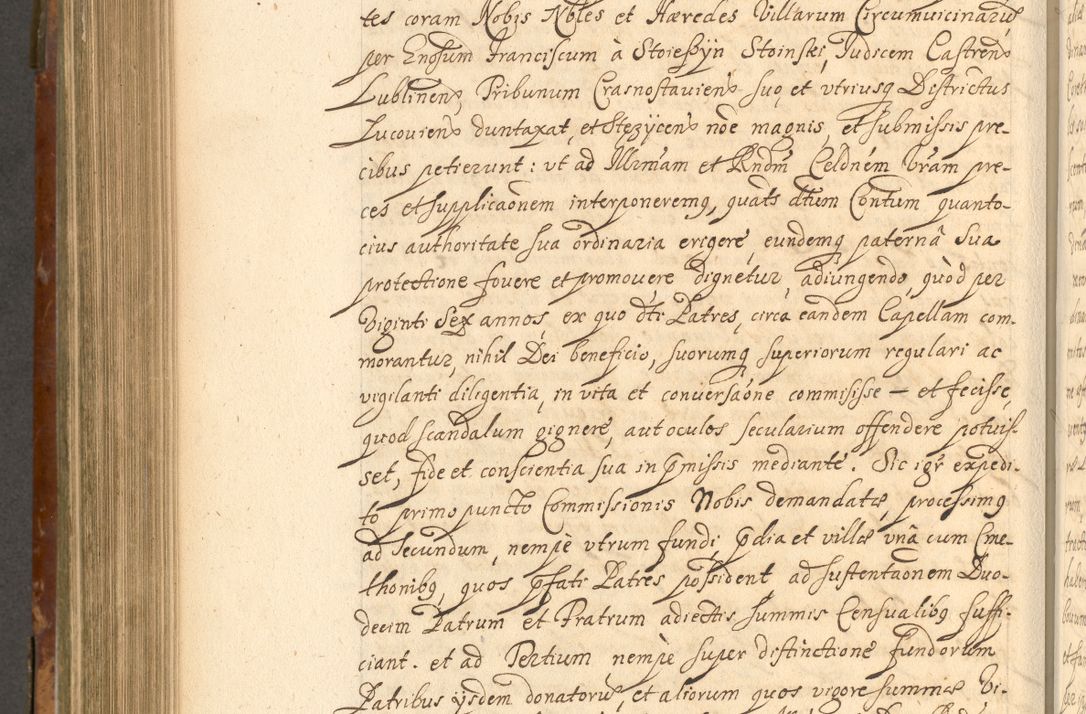 tes coram Nobis Nbles et Hæredes Villarum Circumuicinarũ
per Gnosum Franciscum à Stoieszyn Stoinski, Judicem Castren
Lublinen, Tribunum Crasnostauien suo, et vtriusq Districtus
Lucouien duntaxat, et Stęzycen noe magnis, et submissis pre-
cibus petierunt: vt ad Illrmam et Rndm̃ Celdnem Vram pre-
ces et supplicaõnem interponeremq, quats dtum Contum quanto-
cius authoritate sua ordinaria erigere, eundemq paternâ sua
protectione fouere et promouere dignetur, adiungendo, quòd per
Viginti Sex annos, ex quo dti Patres, circa eandem Capellam com-
morantur, nihil Dei beneficio, suorumq superiorum regulari ac
vigilanti diligentia, in vita et conuersaõne commisisse – et fecisse,
quod scandalum gignere, aut oculos secularium offendere potuis-
set, fide et conscientia sua in p̃missis mediante. Sic igr expedi-
to primo puncto Commissionis Nobis demandatæ, processimq
ad secundum, nempè vtrum fundi, p̃dia et villæ vnâ cum Cme-
thonibq, quos p̃fati Patres possident ad sustentaõnem Duo-
decim Patrum et Fratrum adiectis summis Censualibq suffi-
ciant. et ad Tertium nempè super distinctione fundorum
Patribus ijsdem donatorũ, et aliorum quos vigore summæ Vi-